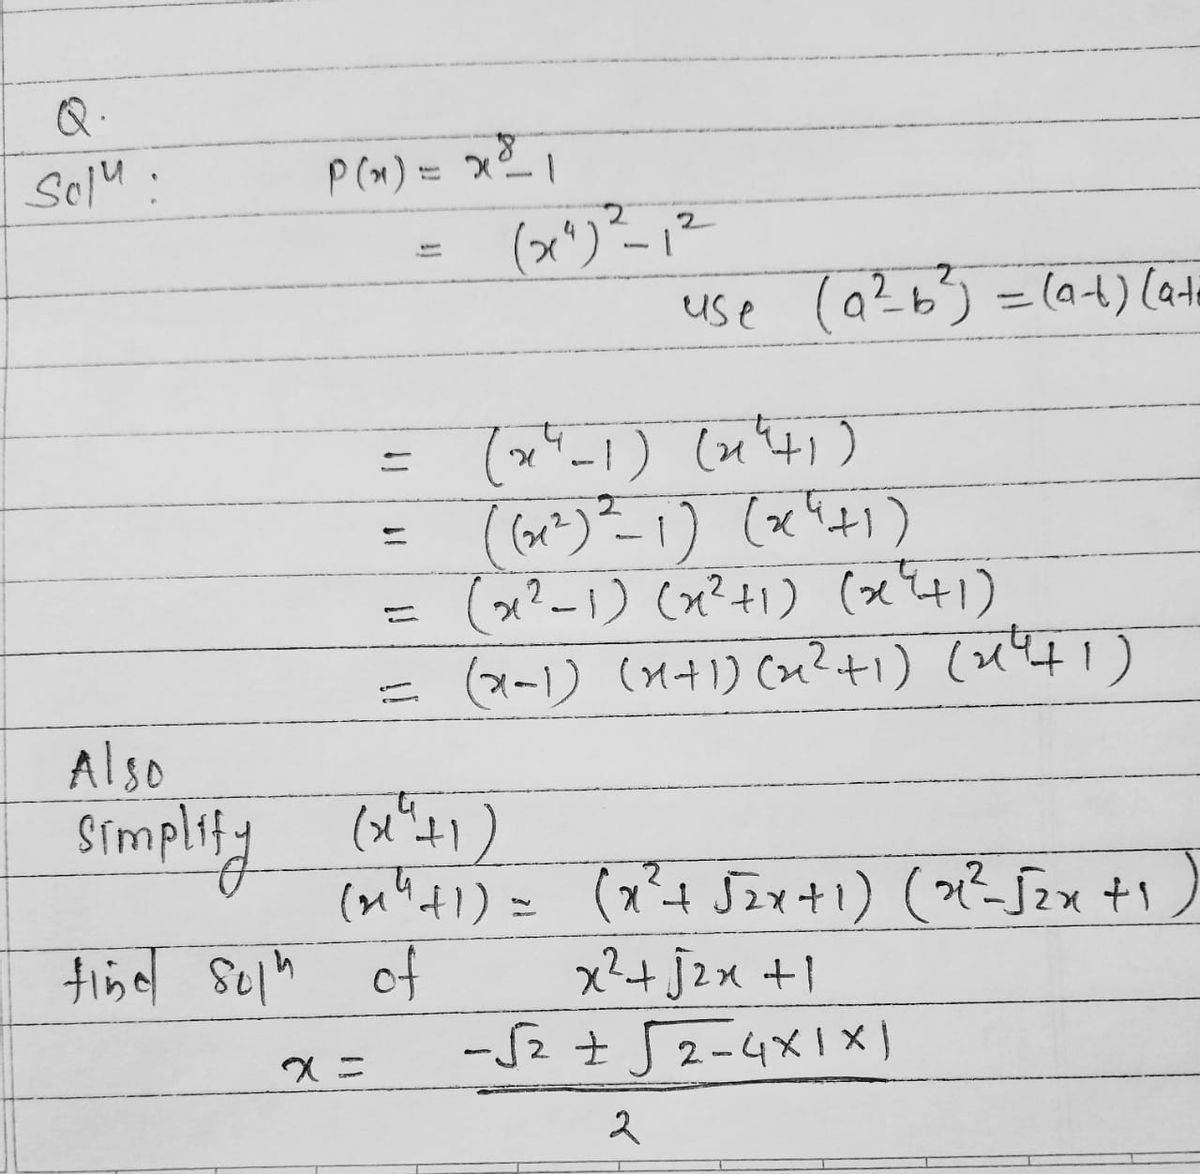 Q.
Solⁿ : P(x) = x⁸-1
= (x⁴)²-1²
use (a²-b²) = (a-b) (a+
= (x⁴-1) (x⁴+1)
= ((x²)²-1) (x⁴+1)
= (x²-1) (x²+1) (x⁴+1)
= (x-1) (x+1) (x²+1) (x⁴+1)
Also
Simplify (x⁴+1)
(x⁴+1) = (x²+√2x+1) (x²-√2x+1)
find solⁿ of x²+√2x+1
x = (-√2 ± √(2-4×1×1))/2